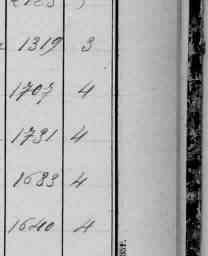 1319 3
1707 4
1731 4
1683 4
1640 4